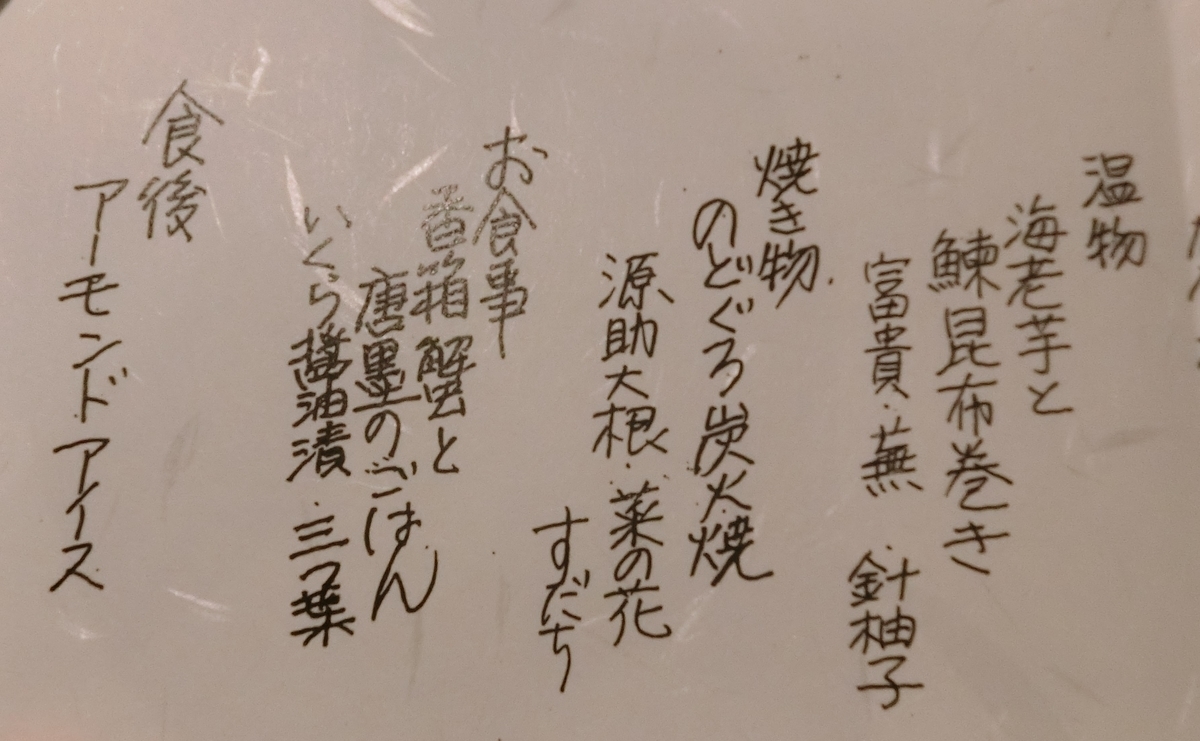 温物
海老芋と
鰊昆布巻き
富貴・蕪 針柚子
焼き物
のどぐろ炭火焼
源助大根・菜の花
すだち
お食事
香箱蟹と
唐墨のごはん
いくら醤油漬 三つ葉
食後
アーモンドアイス